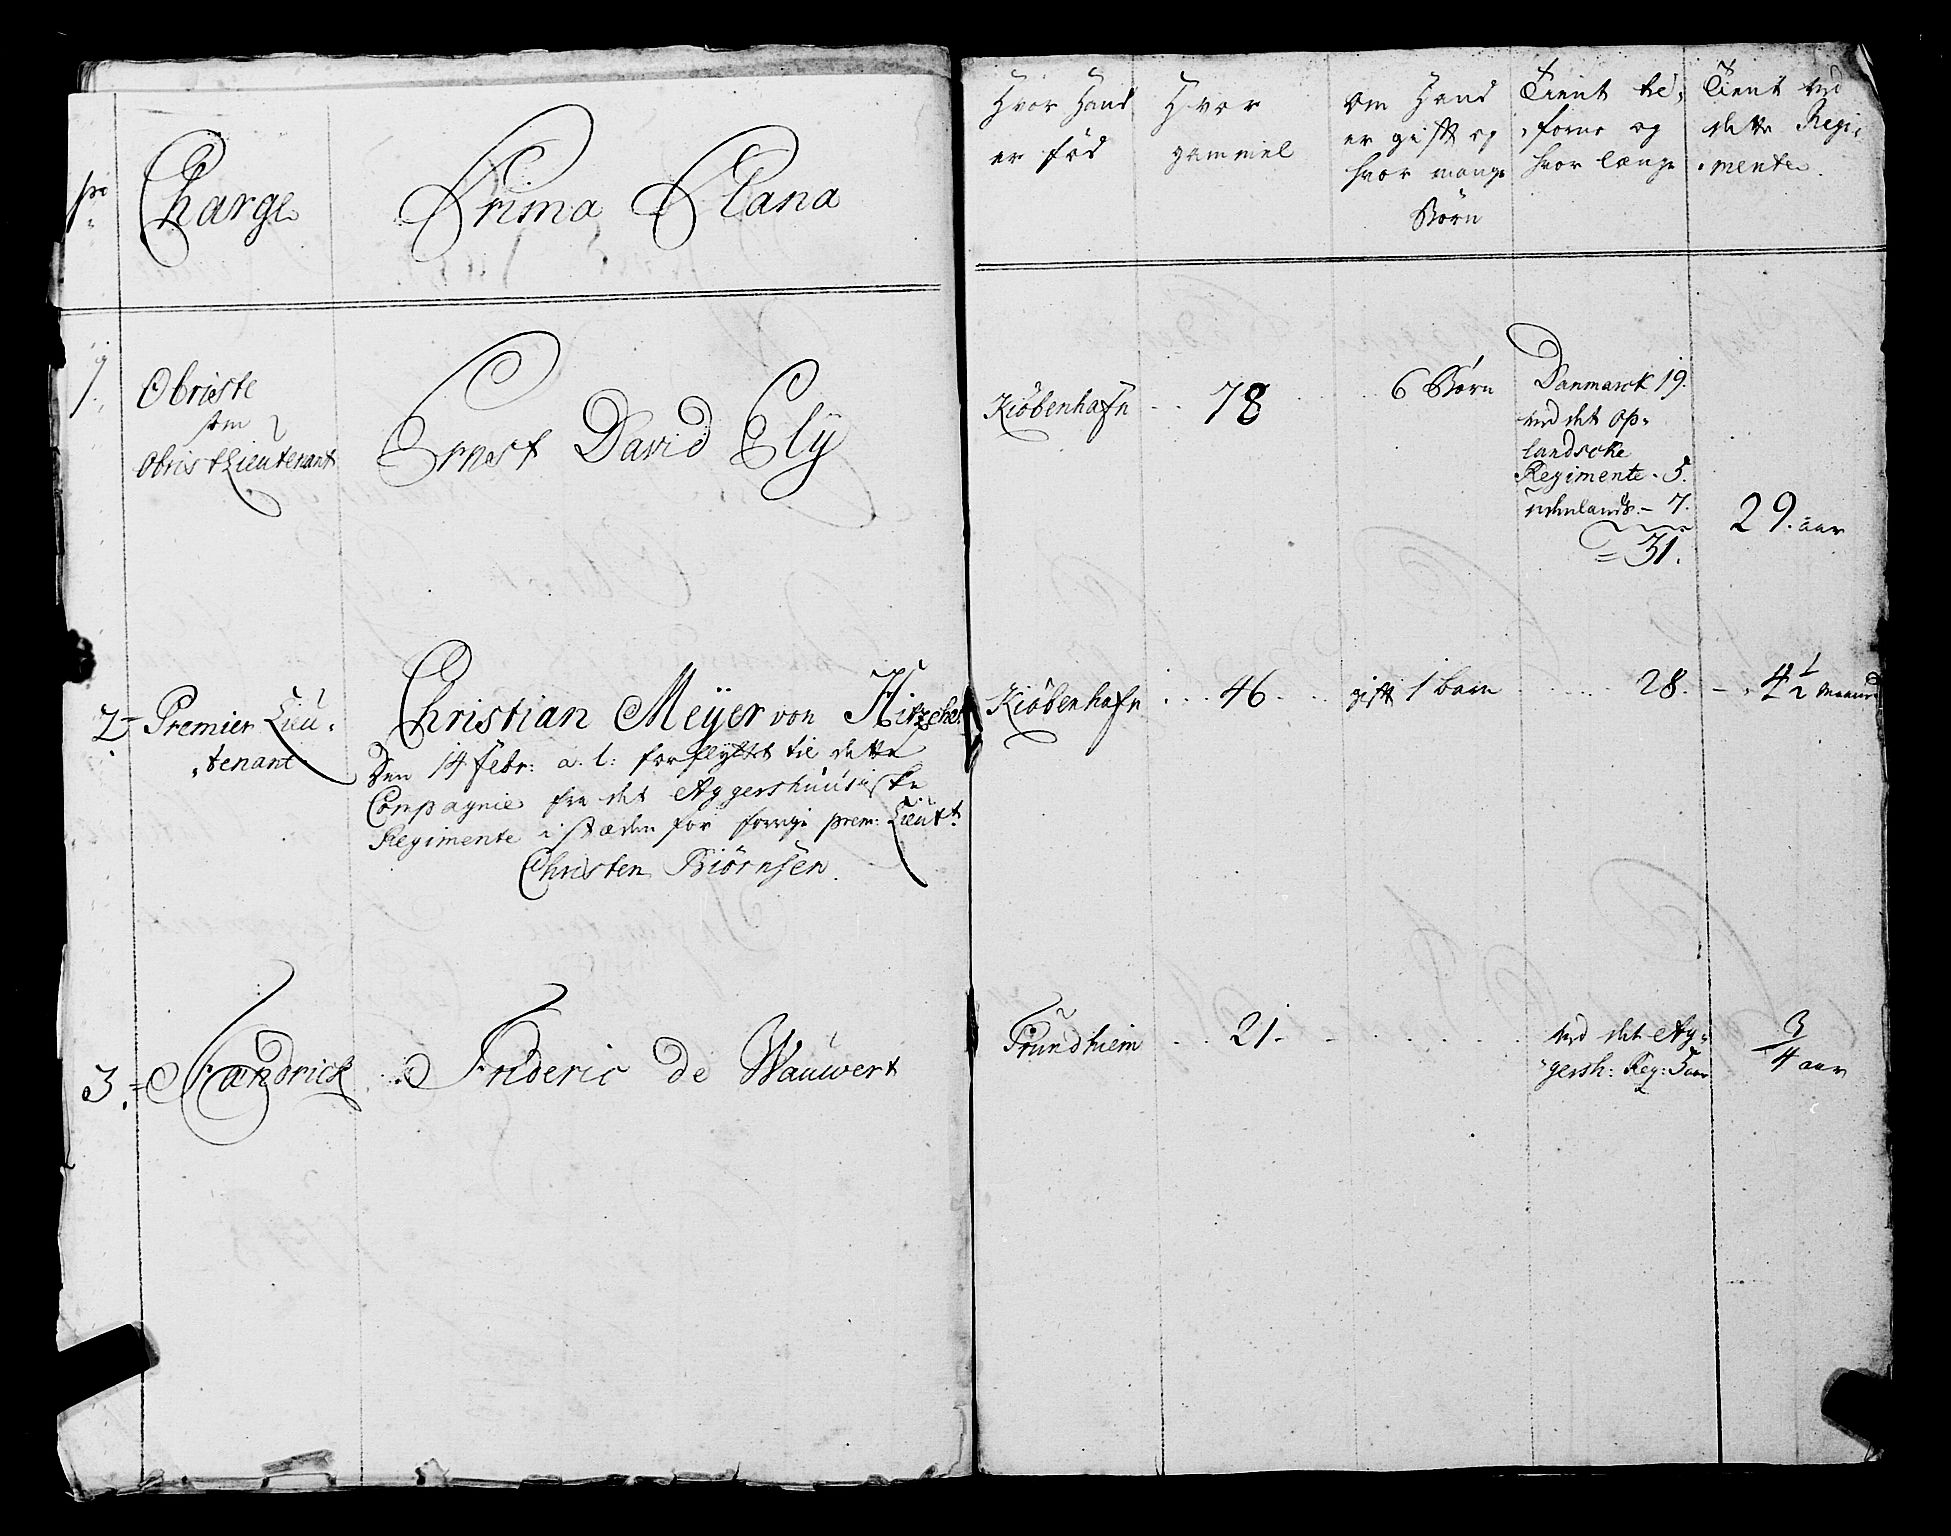 Charge
Prima Plana
Hvor Hand
er fød
Hvor
gammel
Om Hand
er gift og
hvor mange
Børn
Tient til„
„forne og
hvor længe
Tient ved
dette Regi„
„mente.
1.
Obriste
som
Obrist Lieutenant
Ernest David Ely
Kiøbenhafn
78
6 Børn
Danmarck 19.
ved det op„
landsche
Regimente - 5.
udenlands. - 7.
= 31.
29. aar
2 -
Premier Lieu„
„tenant
Christian Meyer von
Den 14 Febr: a. c: forflyttet til dette
Compagnie fra det Aggershuusiske
Regimente i stæden for forrige prem: Lieut:
Christen Biørnsen.
Kiøbenhafn
46
gift 1 barn
28.
4 1/2 Maaned
3. -
Fændrick
Frideric de Wauwert
Trundhiem
21.
ved det Ag„
„gersh: Reg:
3/4 aar